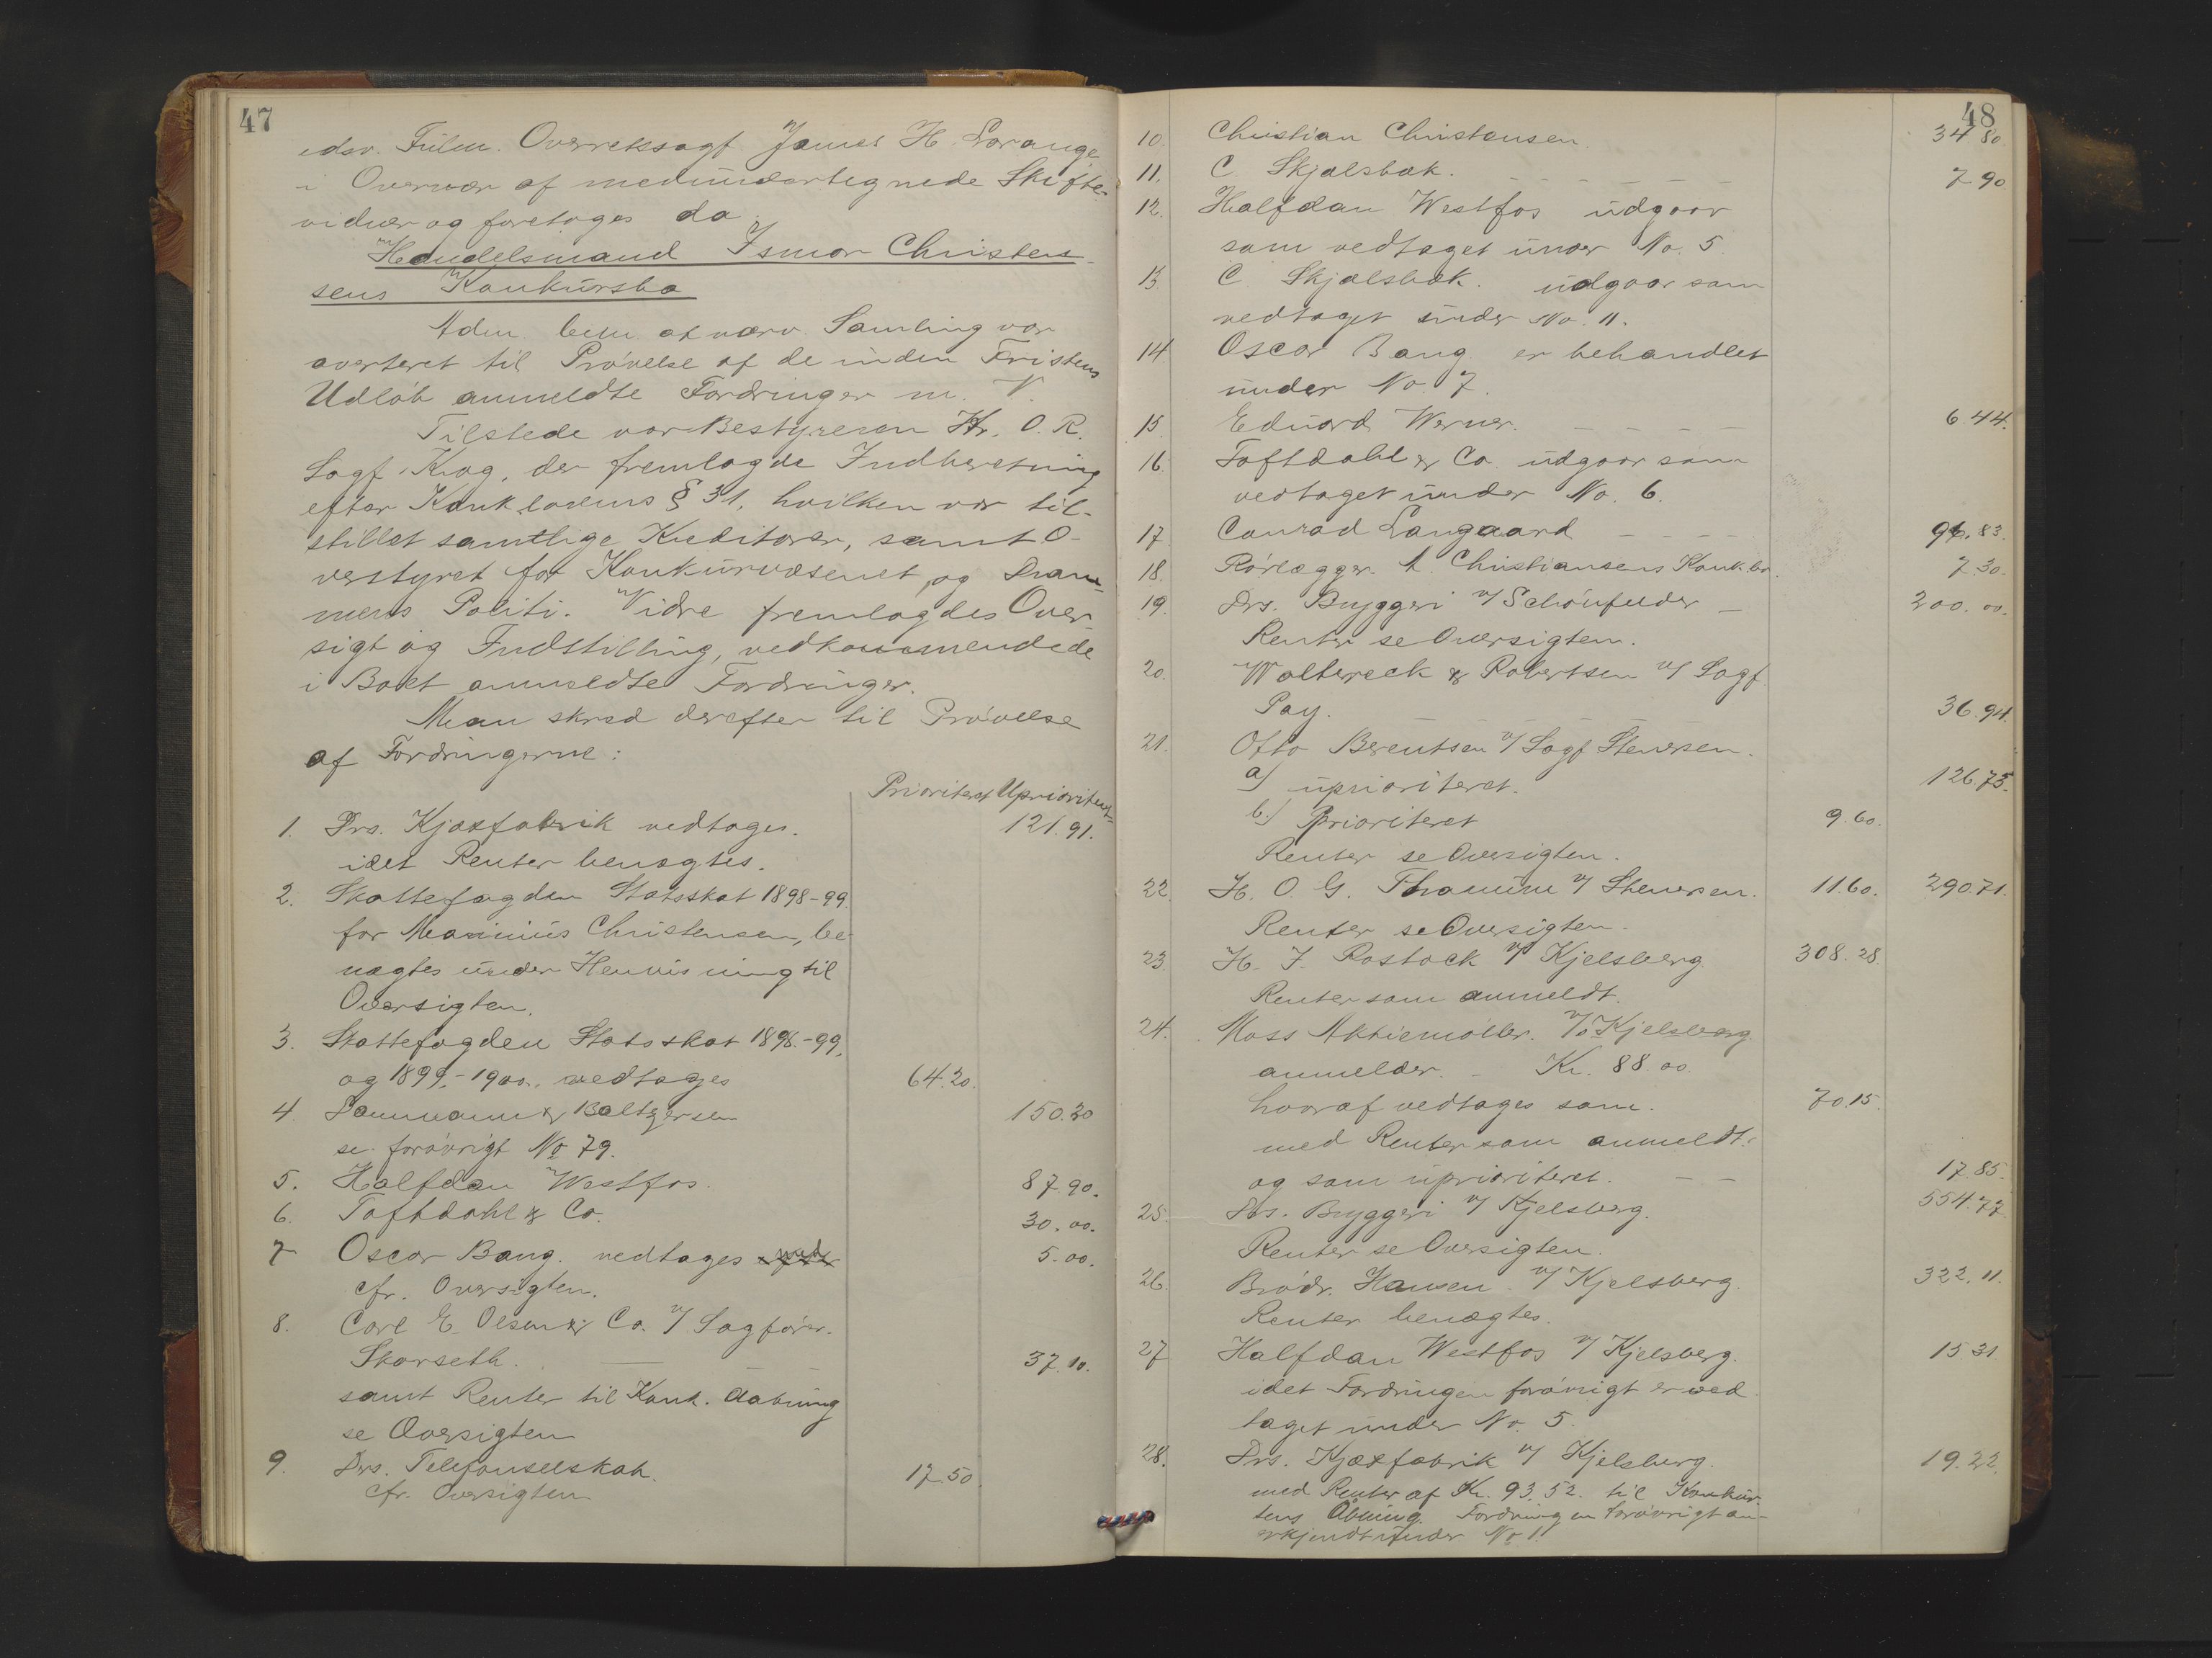 47
edsv. Fulm. Overretssagf. James H. Lorange
i Overvær af medundertegnede Skifte-
vidner og foretoges da
Handelsmand Ismar Christen-
sens Konkursbo
Adm. bem. at nærv. Samling var
averteret til Prövelse af de inden Fristens
Udlöb anmeldte Fordringer m. V.
Tilstede var Bestyreren Hr. O. R.
Sagf. Krag, der fremlagde Indberetning
efter Konk.lovens § 31, hvilken var til-
stillet samtlige Kreditorer, samt O-
verstyret for Konkursvæsenet, og Dram-
mens Politi. Vidre fremlagdes Over-
sigt og Indstilling, vedkommendede
i Boet anmeldte Fordringer.
Man skred derefter til Prövelse
af Fordringerne:
Prioriteret Uprioriteret
1. Drs. Kjæxfabrik vedtages. 121.91.
idet Renter benægtes.
2. Skattefogden Statsskat 1898-99.
for Marinius Christensen, be-
nægtes under Henvisning til
Oversigten.
3. Skattefogden Statsskat 1898.-99,
og 1899.-1900., vedtages 64.20.
4. Dannmann & Baltzersen 150.20
se forövrigt No 79.
5. Halfdan Westfos. 87.90.
6. Toftdahl & Co. 30.00.
7 Oscar Bang. vedtages 5.00.
cfr. Oversigten.
8. Carl E. Olsen & Co. v/ Sagförer.
Skarseth. — — — 37.10.
samt Renter til Konk. Aabning
se Oversigten
9. Drs. Telefonselskab. 17.50
cfr. Oversigten
48
10. Christian Christensen 34 80.
11. C. Skjælsbæk. - - - - - 7.90.
12. Halfdan Westfos udgaar
som vedtaget under No. 5.
13 C. Skjælsbæk. udgaar som
vedtaget under No. 11.
14 Oscar Bang er behandlet
under No. 7.
15. Eduard Werner. - - - - 6.44.
16. Toftdahl & Co. udgaar som
vedtaget under No. 6.
17. Conrad Langaard - - - - 96.83.
18. Rörlægger A. Christiansens Konk.bo. 7.30.
19. Drs. Bryggeri v/ Schönfelder — 200.00.
Renter se Oversigten.
20. Woltereck & Robertsen v/ Sagf.
Pay. 36.94.
21. Otto Berentsen v/ Sagf. Stenersen.
a) uprioriteret. 126.75.
b.) Prioriteret 9.60.
Renter se Oversigten.
22. H. O. G. Thamine v/ Stenersen. 11.60. 290.71.
Renter se Oversigten.
23. H. J. Rostock v/ Kjelsberg. 308.28.
Renter som anmeldt.
24. Moss Aktiemöller. v/ Kjelsberg
anmelder. — Kr. 88.00
hvoraf vedtages som. 70.15.
med Renter som anmeldt.
og som uprioriteret. — — 17.85.
25. Drs. Bryggeri v/ Kjelsberg. 554.77
Renter se Oversigten.
26. Brödr. Hansen v/ Kjelsberg. 322.11.
Renter benægtes.
27 Halfdan Westfos v/ Kjelsberg. 15 31
idet Fordringen forövrigt er ved-
taget under No. 5.
28. Drs. Kjæxfabrik v/ Kjelsberg. 19.22.
med Renter af Kr. 93.52. til Konkur-
sens Åbning. Fordringen forövrigt an-
erkjendt under No 1.